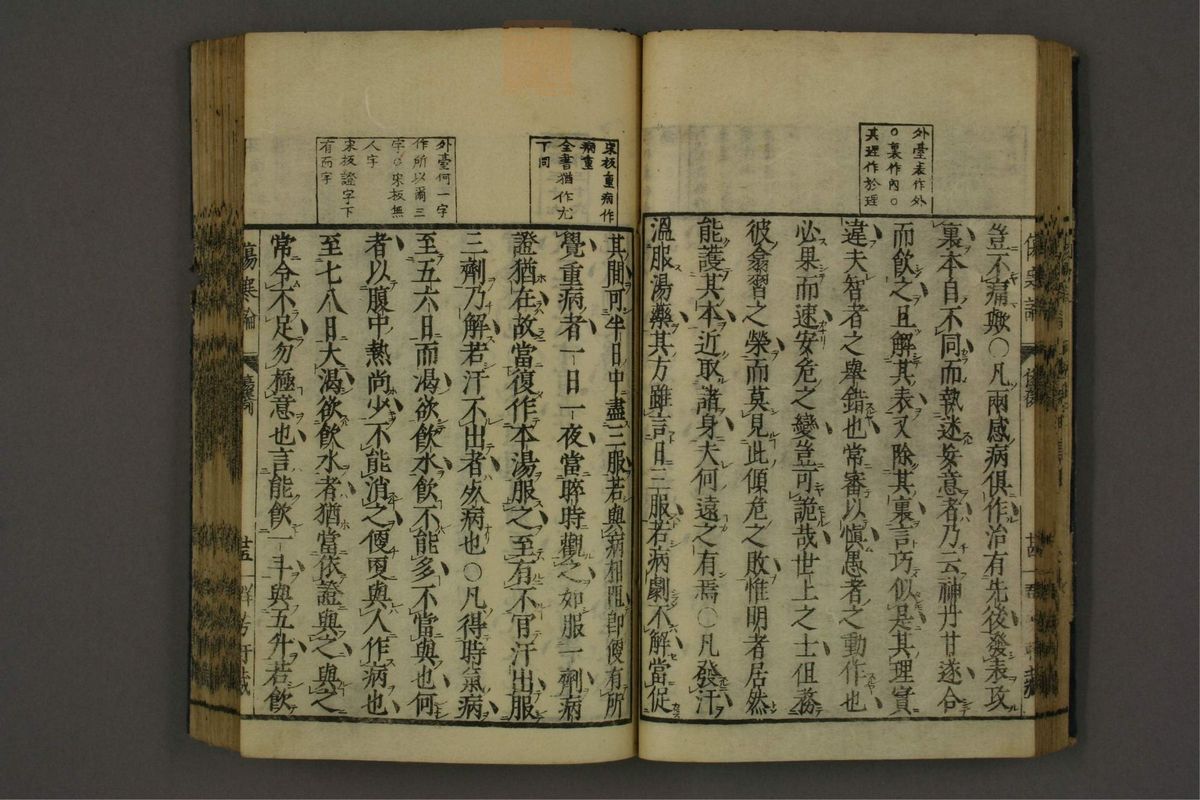 外臺表作外
○裏作內○
其理作於理
豈不痛歟○凡兩感病俱作治有先後發表攻
裏本自不同而執迷妄意者乃云神丹甘遂合
而飲之且解其表又除其裏言巧似是其理實
違夫智者之舉錯也常審以愼愚者之動作也
必果而速安危之變豈可詭哉世上之士但務
彼翕習之榮而莫見此傾危之敗惟明者居然
能護其本近取諸身夫何遠之有焉○凡發汗
溫服湯藥其方雖言日三服若病劇不解當促
宋板重病作
病重
全書猶作尤
下同
外臺何一字
作所以爾三
字○宋板無
人字
宋板證字下
有而字
其間可半日中盡三服若與病相阻卽便有所
覺重病者一日一夜當晬時觀之如服一劑病
證猶在故當復作本湯服之至有不肯汗出服
三劑乃解若汗不出者死病也○凡得時氣病
至五六日而渴欲飲水飲不能多不當與也何
者以腹中熱尚少不能消之便更與人作病也
至七八日大渴欲飲水者猶當依證與之與之
常令不足勿極意也言能飲一斗與五升若飲
傷寒論